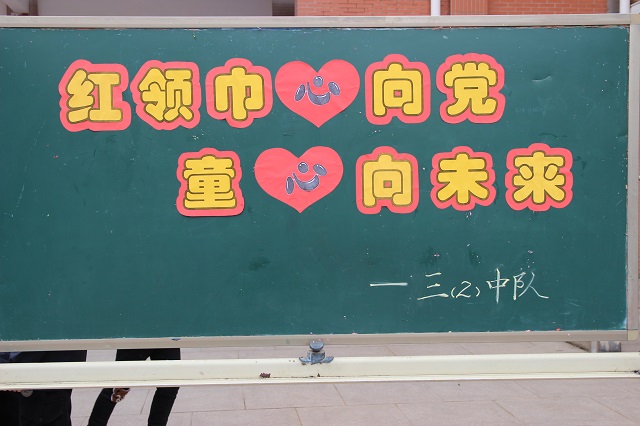 红领巾心向党
童心向未来
一三(2)中队